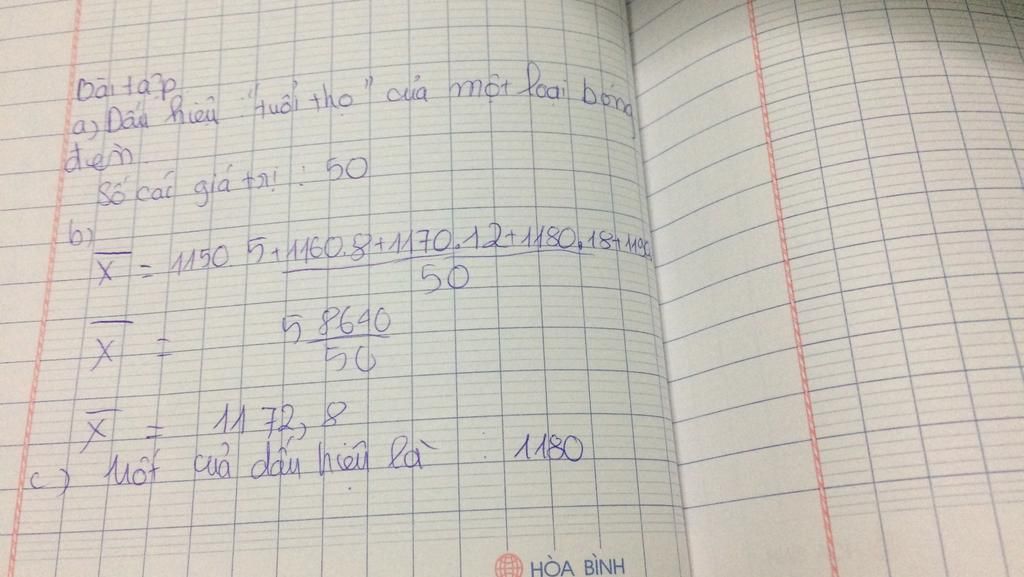 Bài tập
a) Dấu hiệu: "tuổi thọ" của một loại bóng
đèn
Số các giá trị: 50
b)
X = 1150 5+1160.8+1170.12+1180.18+119
50
X = 58640
50
X = 1172,8
c) Mốt của dấu hiệu là : 1180
HÒA BÌNH